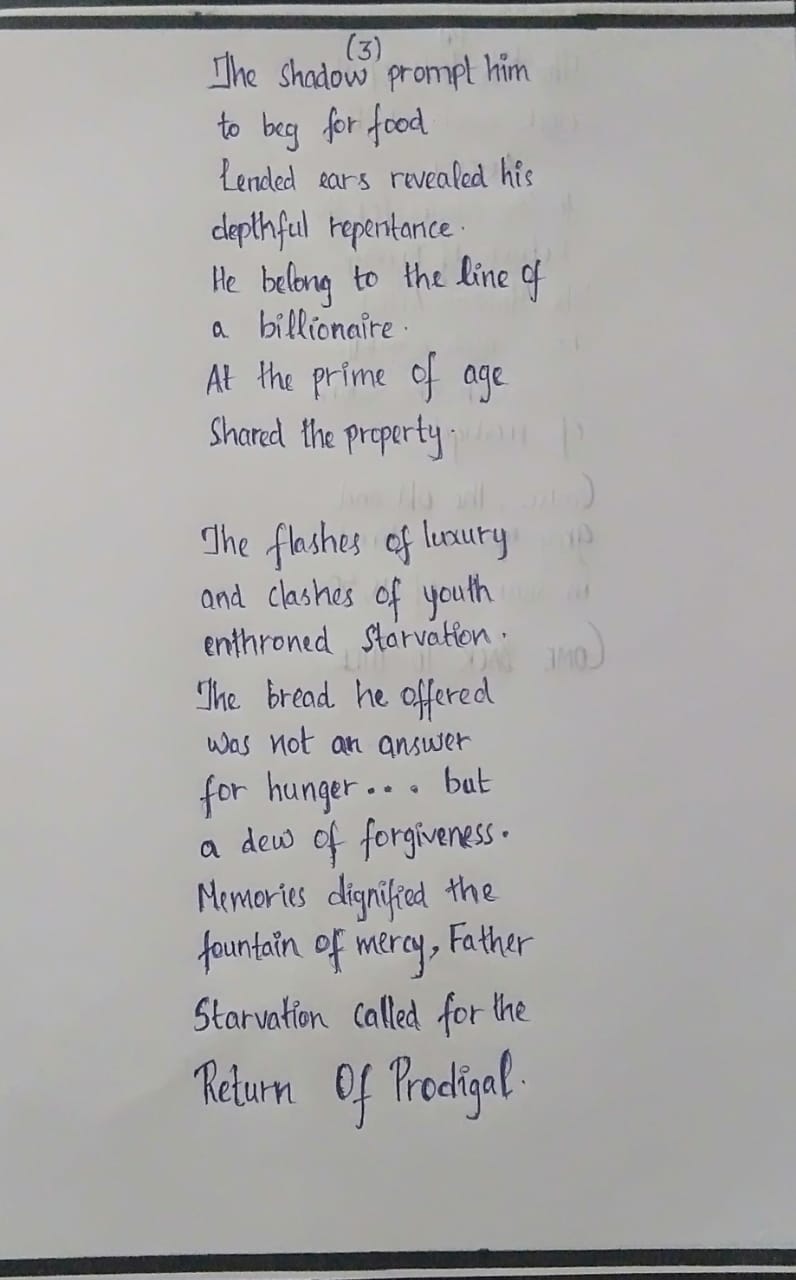 (3)
The shadow prompt him
to beg for food
Lended ears revealed his
depthful repentance.
He belong to the line of
a billionaire.
At the prime of age
Shared the property.
The flashes of luxury
and clashes of youth
enthroned starvation.
The bread he offered
was not an answer
for hunger.... but
a dew of forgiveness.
Memories dignified the
fountain of mercy, Father
Starvation called for the
Return Of Prodigal.